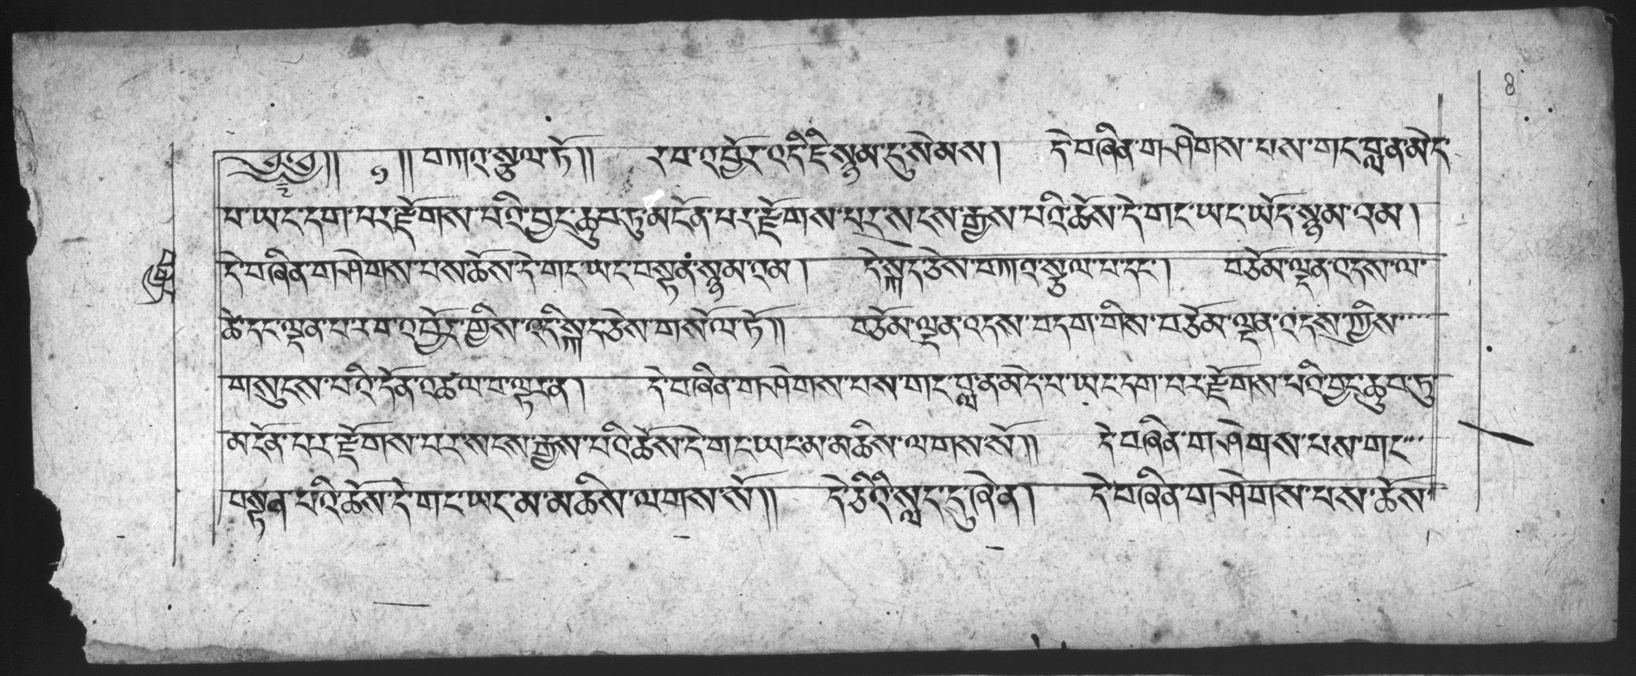 ༄༅།། ༡ །།བཀའ་སྩལ་ཏོ།། རབ་འབྱོར་འདི་ཇི་སྙམ་དུ་སེམས། དེ་བཞིན་གཤེགས་པས་གང་བླན་མེད་
པ་ཡང་དག་པར་རྫོགས་པའི་བྱང་ཆུབ་ཏུ་མངོན་པར་རྫོགས་པར་སངས་རྒྱས་པའི་ཆོས་དེ་གང་ཡང་ཡོད་སྙམ་འམ།
དེ་བཞིན་གཤེགས་པས་ཆོས་དེ་གང་ཡང་བསྟན་ཾ་སྙམ་འམ། དེ་སྐད་ཅེས་བཀའ་སྩལ་པ་དང་། བཅོམ་ལྡན་འདས་ལ་
ཚེ་དང་ལྡན་པ་རབ་འབྱོར་གྱིས་འདི་སྐད་ཅེས་གསོལ་ཏོ།། བཅོམ་ལྡན་འདས་བདག་གིས་བཅོམ་ལྡན་འདས་ཀྱིས་
གསུངས་པའི་དོན་འཚལ་བ་ལྟར་ན། དེ་བཞིན་གཤེགས་པས་གང་བླ་ན་མེད་པ་ཡང་དག་པར་རྫོགས་པའི་བྱང་ཆུབ་ཏུ
མངོན་པར་རྫོགས་པར་སངས་རྒྱས་པའི་ཆོས་དེ་གང་ཡང་མ་མཆིས་ལགས་སོ།། དེ་བཞིན་གཤེགས་པས་གང་
བསྟན་པའི་ཆོས་དེ་གང་ཡང་མ་མཆིས་ལགས་སོ།། དེ་ཅིའི་སླད་དུ་ཞེ་ན། དེ་བཞིན་གཤེགས་པས་ཆོས་
8